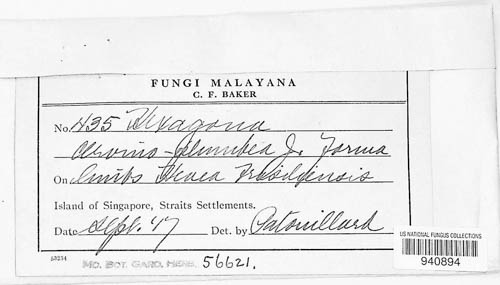 FUNGI MALAYANA
C. F. BAKER
No. 435 Hexagona
cervino-plumbea J. Forma
On limbs Hevea Brasiliensis
Island of Singapore, Straits Settlements.
Date Sept. '17 Det. by Patouillard
53234
MO. BOT. GARD. HERB. 56621.
US NATIONAL FUNGUS COLLECTIONS
940894